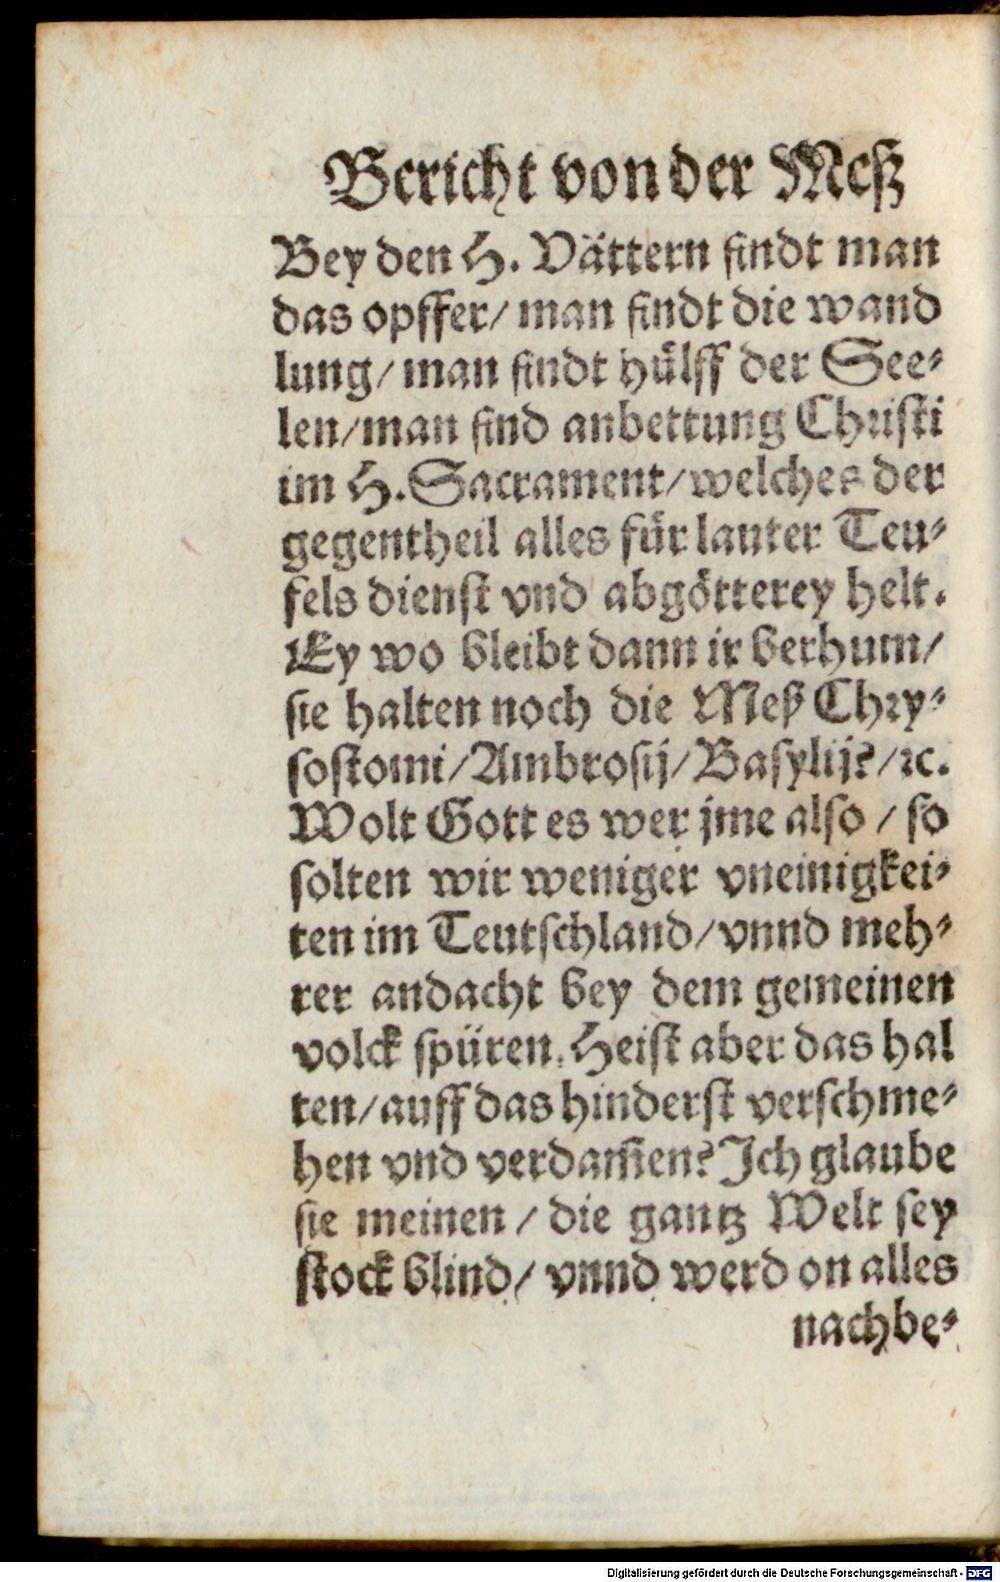 Bericht von der Meß
Bey den H. Vättern findt man
das opffer/ man findt die wand
lung/ man findt hülff der See⸗
len/man find anbettung Christi
im H. Sacrament/welches der
gegentheil alles für lauter Teu⸗
fels dienst vnd abgötterey helt.
Ey wo bleibt dann ir berhum/
sie halten noch die Meß Chry⸗
sostomi/Ambrosij/Basylij?/ꝛc.
Wolt Gott es wer jme also / so
solten wir weniger vneinigkei⸗
ten im Teutschland/vnnd meh⸗
rer andacht bey dem gemeinen
volck spüren. Heist aber das hal
ten/auff das hinderst verschme⸗
hen vnd verdam̃en? Ich glaube
sie meinen / die gantz Welt sey
stock blind/ vnnd werd on alles
nachbe⸗
Digitalisierung gefördert durch die Deutsche Forschungsgemeinschaft - DFG